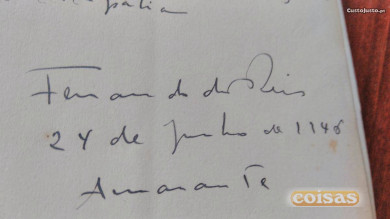 CustoJusto.pt
Fernando dos Reis
24 de Junho de 1146
Amarante
coisas